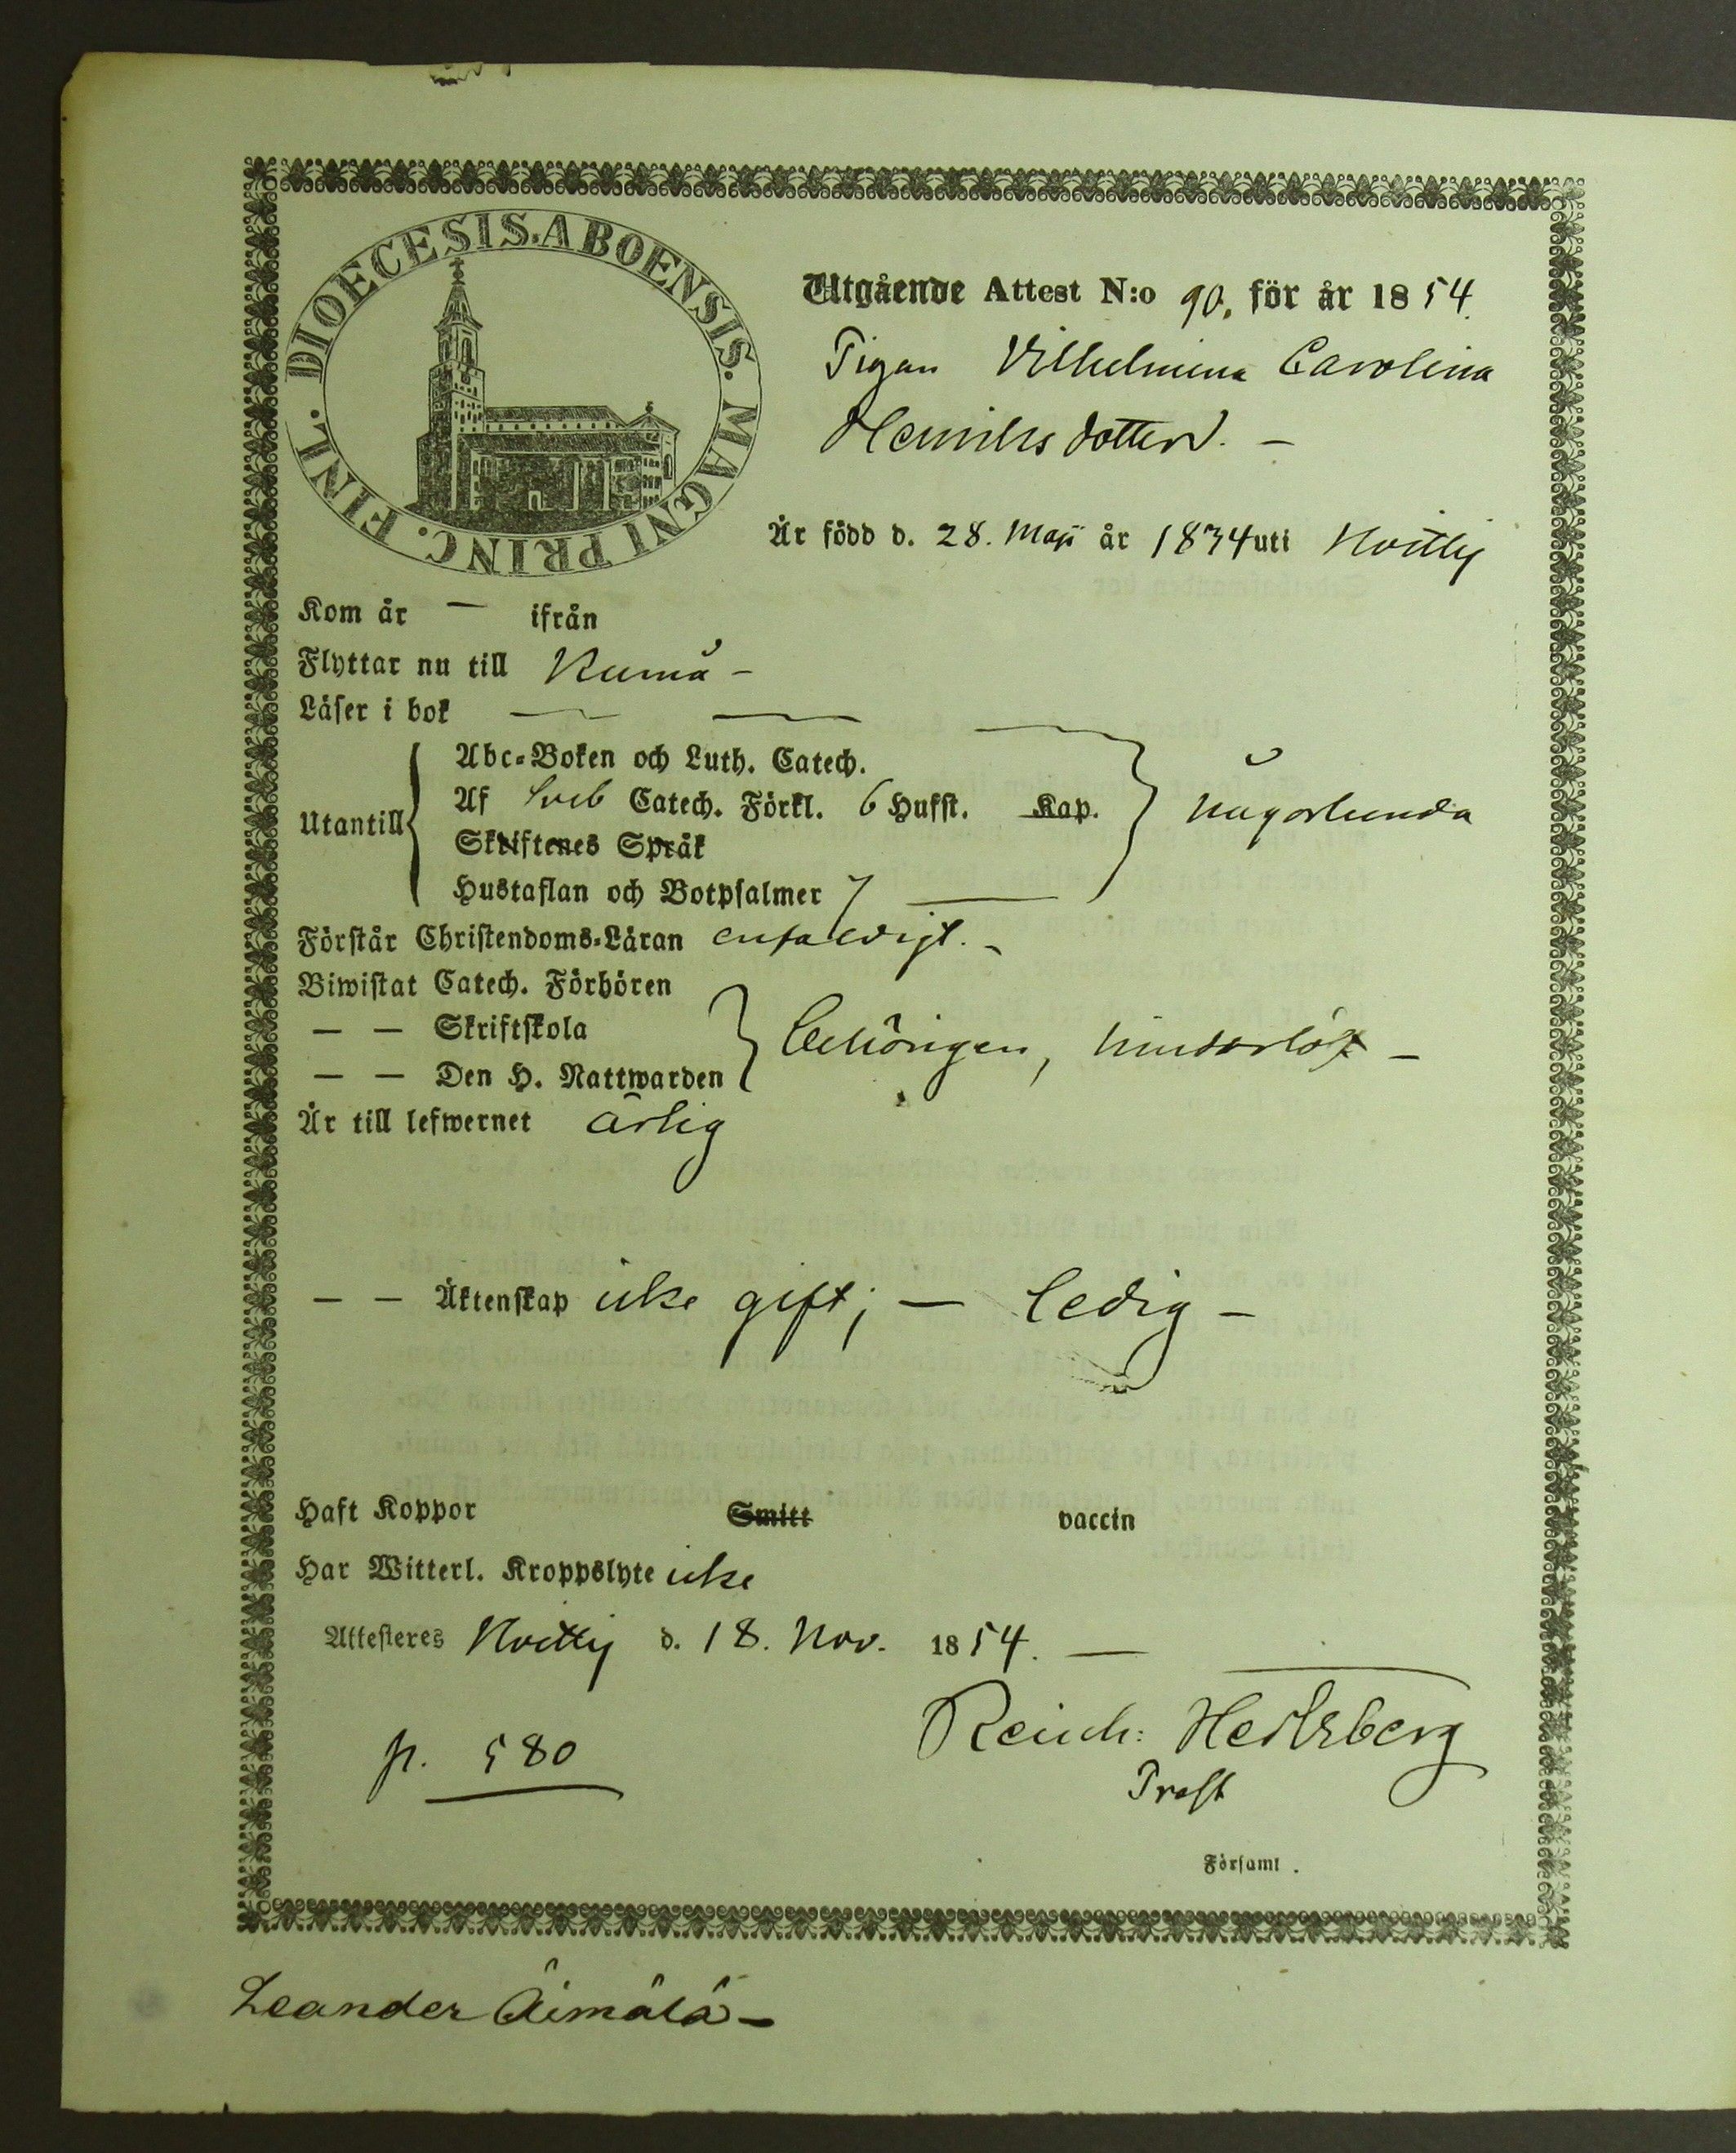 DIOECESIS. ABOENSIS. MAGNI PRINC. FINL.
Utgående Attest N:o 90. för år 1854.
Pigan Vilhelmina Carolina
Henriksdotter. —
Är född d. 28. Maji år 1834 uti Hvittis
Kom år — ifrån
Flyttar nu till Kumå —
Läser i bok — — —
Utantill
Abc-Boken och Luth. Catech.
Af Sveb Catech. Förkl. 6 Hufst. Kap.
Skriftenes Språk
Hustaflan och Botpsalmer 7 —
någorlunda
Förstår Christendoms-Läran enfaldigt. —
Biwistat Catech. Förhören
— — Skriftskola
— — Den H. Nattwarden
behörigen, hinderlös —
Är till lefwernet ärlig
— — Äktenskap icke gift; — ledig —
Haft Koppor Smitt vaccin
Har Witterl. Kroppslyte icke
Attesteres Hvittis d. 18. Nov. 1854. —
p. 580
Reinh: Hertzberg
Prost
Församl.
Leander Äimälä —